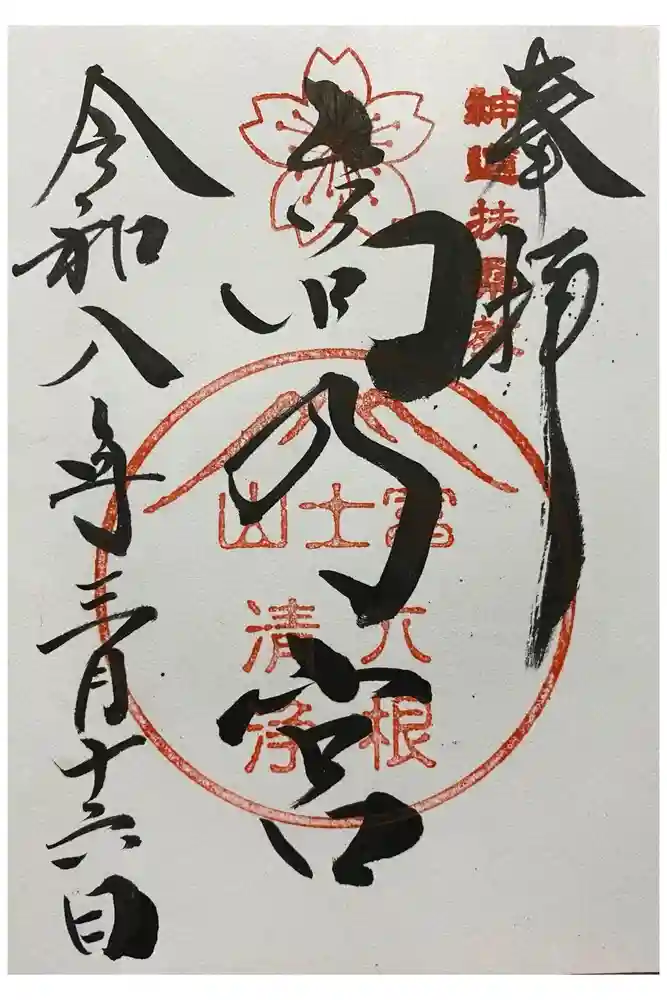 奉拝
神道扶桑教
乃宮
富士山
六根
清浄
令和八年三月十六日